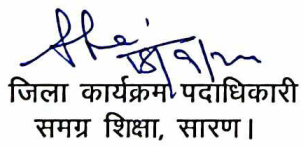 18/9/20
जिला कार्यक्रम पदाधिकारी
समग्र शिक्षा, सारण।